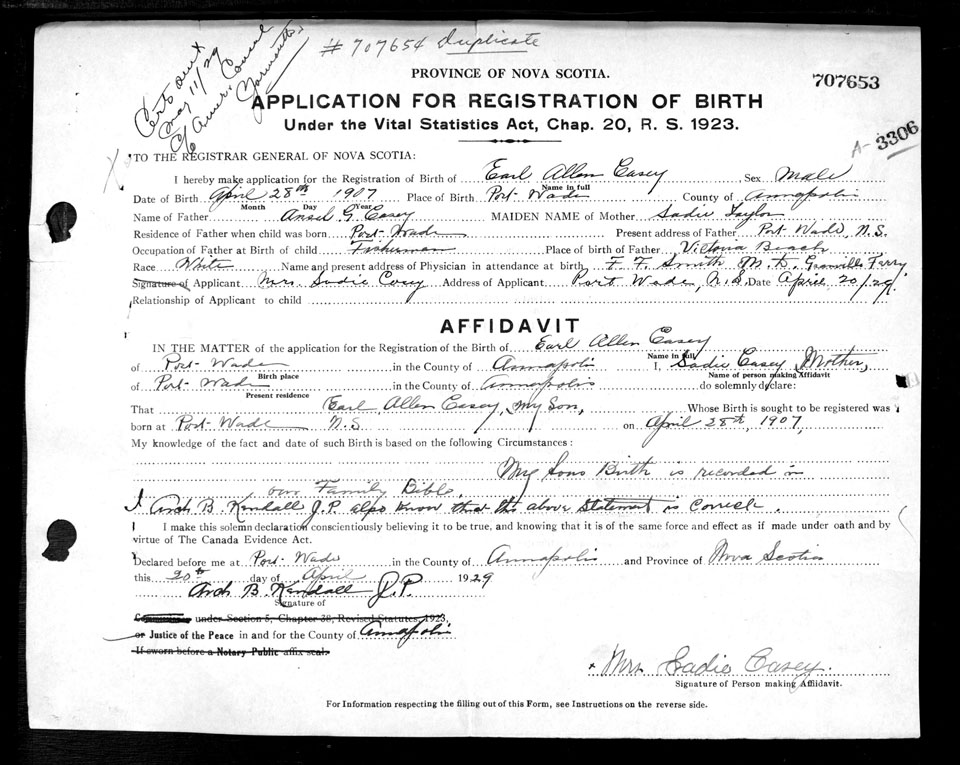 # 707654 Duplicate
Certs out
May 11/29
c/o Amer. Consul
Yarmouth
PROVINCE OF NOVA SCOTIA.
707653
APPLICATION FOR REGISTRATION OF BIRTH
Under the Vital Statistics Act, Chap. 20, R. S. 1923.
A-3306
TO THE REGISTRAR GENERAL OF NOVA SCOTIA:
I hereby make application for the Registration of Birth of Earl Allen Casey Sex Male
Name in full
Date of Birth April 28th 1907 Place of Birth Port Wade County of Annapolis
Month Day Year
Name of Father Ansel G. Casey MAIDEN NAME of Mother Sadie Taylor
Residence of Father when child was born Port Wade Present address of Father Port Wade, N.S.
Occupation of Father at Birth of child Fisherman Place of birth of Father Victoria Beach
Race White Name and present address of Physician in attendance at birth, F. F. Smith M.D. Granville Ferry
Signature of Applicant Mrs. Sadie Casey Address of Applicant Port Wade, N.S. Date April 20/29.
Relationship of Applicant to child
AFFIDAVIT
IN THE MATTER of the application for the Registration of the Birth of Earl Allen Casey
Name in full
of Port Wade in the County of Annapolis I, Sadie Casey, Mother,
Birth place Name of person making Affidavit
of Port Wade in the County of Annapolis do solemnly declare:
Present residence
That Earl Allen Casey, my Son, Whose Birth is sought to be registered was
born at Port Wade N.S. on April 28th, 1907,
My knowledge of the fact and date of such Birth is based on the following Circumstances:
My Sons Birth is recorded in
our Family Bible.
I Arch B. Kendall J.P. also know that the above Statement is Correct.
I make this solemn declaration conscientiously believing it to be true, and knowing that it is of the same force and effect as if made under oath and by
virtue of The Canada Evidence Act.
Declared before me at Port Wade in the County of Annapolis and Province of Nova Scotia
this 20th day of April 1929
Arch B. Kendall J.P.
Signature of
under Section 5, Chapter 38, Revised Statutes, 1923,
or Justice of the Peace in and for the County of Annapolis
If sworn before a Notary Public affix seal.
x Mrs Sadie Casey.
Signature of Person making Affidavit.
For Information respecting the filling out of this Form, see Instructions on the reverse side.